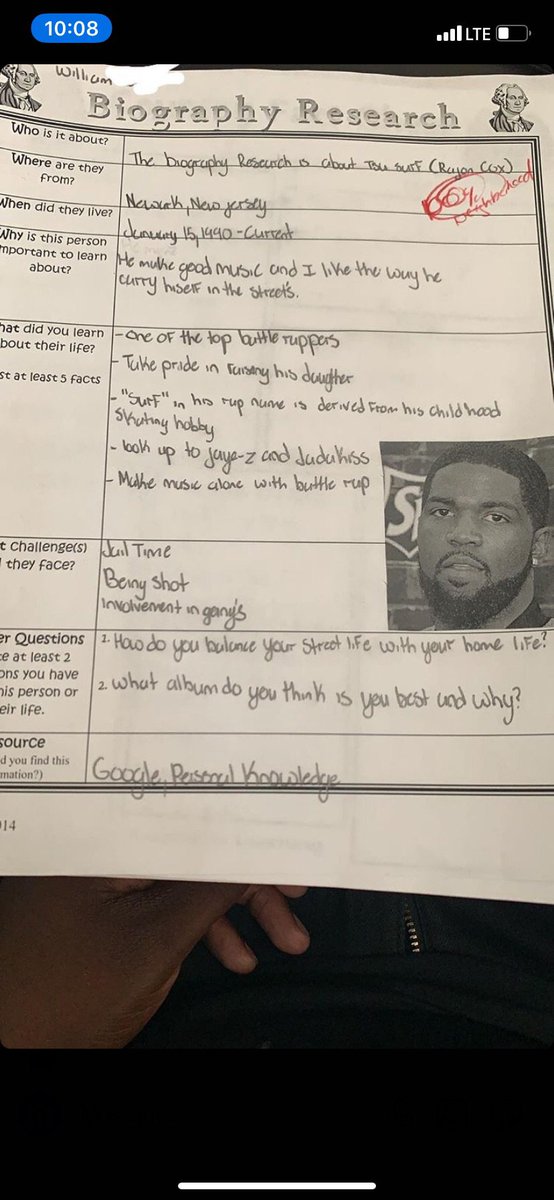 10:08
LTE
William
Biography Research
Who is it about?
The biography Research is about Tsu Surf (Rayon Cox)
Where are they
from?
Newark, New jersey
neighborhood
When did they live?
January 15, 1990 - Current
Why is this person
mportant to learn
about?
He make good music and I like the way he
carry hiself in the street's.
hat did you learn
bout their life?
st at least 5 facts
- One of the top battle rappers
- Take pride in raising his daughter
- "Surf" in his rap name is derived from his childhood
skating hobby
- look up to jaye-z and Jadakiss
- Make music alone with battle rap
t Challenge(s)
they face?
Jail Time
Being shot
Involvement in gang's
er Questions
e at least 2
ons you have
his person or
eir life.
1. How do you balance your street life with your home life?
2. What album do you think is you best and why?
source
d you find this
mation?)
Google, Personal Knowledge
014